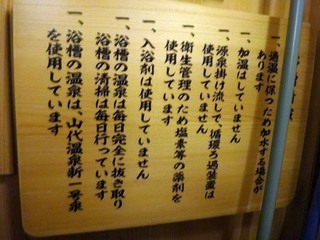 一、適温に保つため加水する場合が
あります
一、加温はしていません
一、源泉掛け流しで、循環ろ過装置は
使用していません
一、衛生管理のため塩素等の薬剤を
使用しています
一、入浴剤は使用していません
一、浴槽の温泉は毎日完全に抜き取り
浴槽の清掃は毎日行っています
一、浴槽の温泉は、山代温泉新一号泉
を使用しています